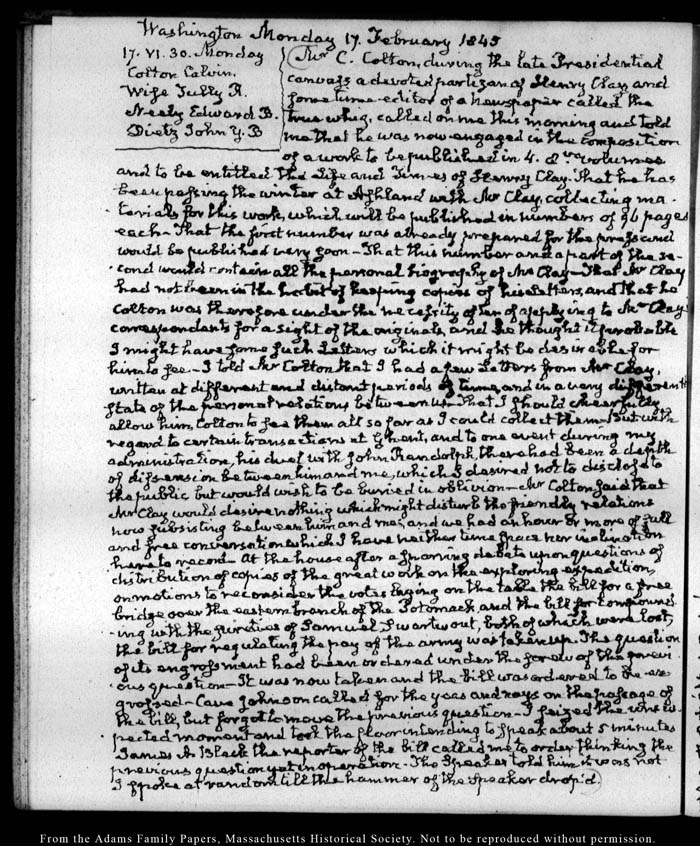 Washington Monday 17. February 1845
17. VI. 30. Monday
Colton Calvin.
Wife Tully R.
Neely Edward B.
Dietz John Y. B
Mr C. Colton, during the late Presidential
canvass a devoted partizan of Henry Clay and
sometime editor of a newspaper called the
true whig, called on me this morning and told
me that he was now engaged in the composition
of a work to be published in 4. 8vo volumes
and to be entitled the Life and Times of Henry Clay. That he has
been passing the winter at Ashland with Mr Clay, collecting ma-
terials for this work, which will be published in numbers of 96 pages
each— That the first number was already prepared for the press and
would be published very soon— That this number and a part of the se-
cond would contain all the personal biography of Mr Clay— That Mr Clay
had not been in the habit of keeping copies of his Letters, and that he
Colton was therefore under the necessity of applying to Mr Clay's
correspondents for a sight of the originals, and he thought it probable
I might have some such Letters which it might be desirable for
him to see— I told Mr Colton that I had a few Letters from Mr Clay,
written at different and distant periods of time, and in a very different
state of the personal relations between us— That I should cheerfully
allow him, Colton to see them all so far as I could collect them— But with
regard to certain transactions at Ghent, and to one event during my
administration, his duel with John Randolph, there had been a depth
of dissension between him and me, which I desired not to disclose to
the public but would wish to be buried in oblivion— Mr Colton said that
Mr Clay would desire nothing which might disturb the friendly relations
now subsisting between him and me, and we had an hour or more of full
and free conversation which I have neither time space nor inclination
here to record— At the house after a sparring debate upon questions of
distribution of copies of the great work on the exploring expedition,
on motions to reconsider the votes laying on the table the bill for a free
bridge over the eastern branch of the Potomack and the bill for compound-
ing with the sureties of Samuel Swartwout, both of which were lost,
the bill for regulating the pay of the army was taken up. The question
of its engrossment had been ordered under the screw of the previ-
ous question— It was now taken and the bill was ordered to be en-
grossed— Cave Johnson called for the yeas and nays on the passage of
the bill, but forgot to move the previous question— I seized the unex-
pected moment and took the floor intending to speak about 5 minutes
James A Black the reporter of the bill called me to order thinking the
previous question yet in operation. The Speaker told him it was not
I spoke at random till the hammer of the Speaker drop'd.
From the Adams Family Papers, Massachusetts Historical Society. Not to be reproduced without permission.